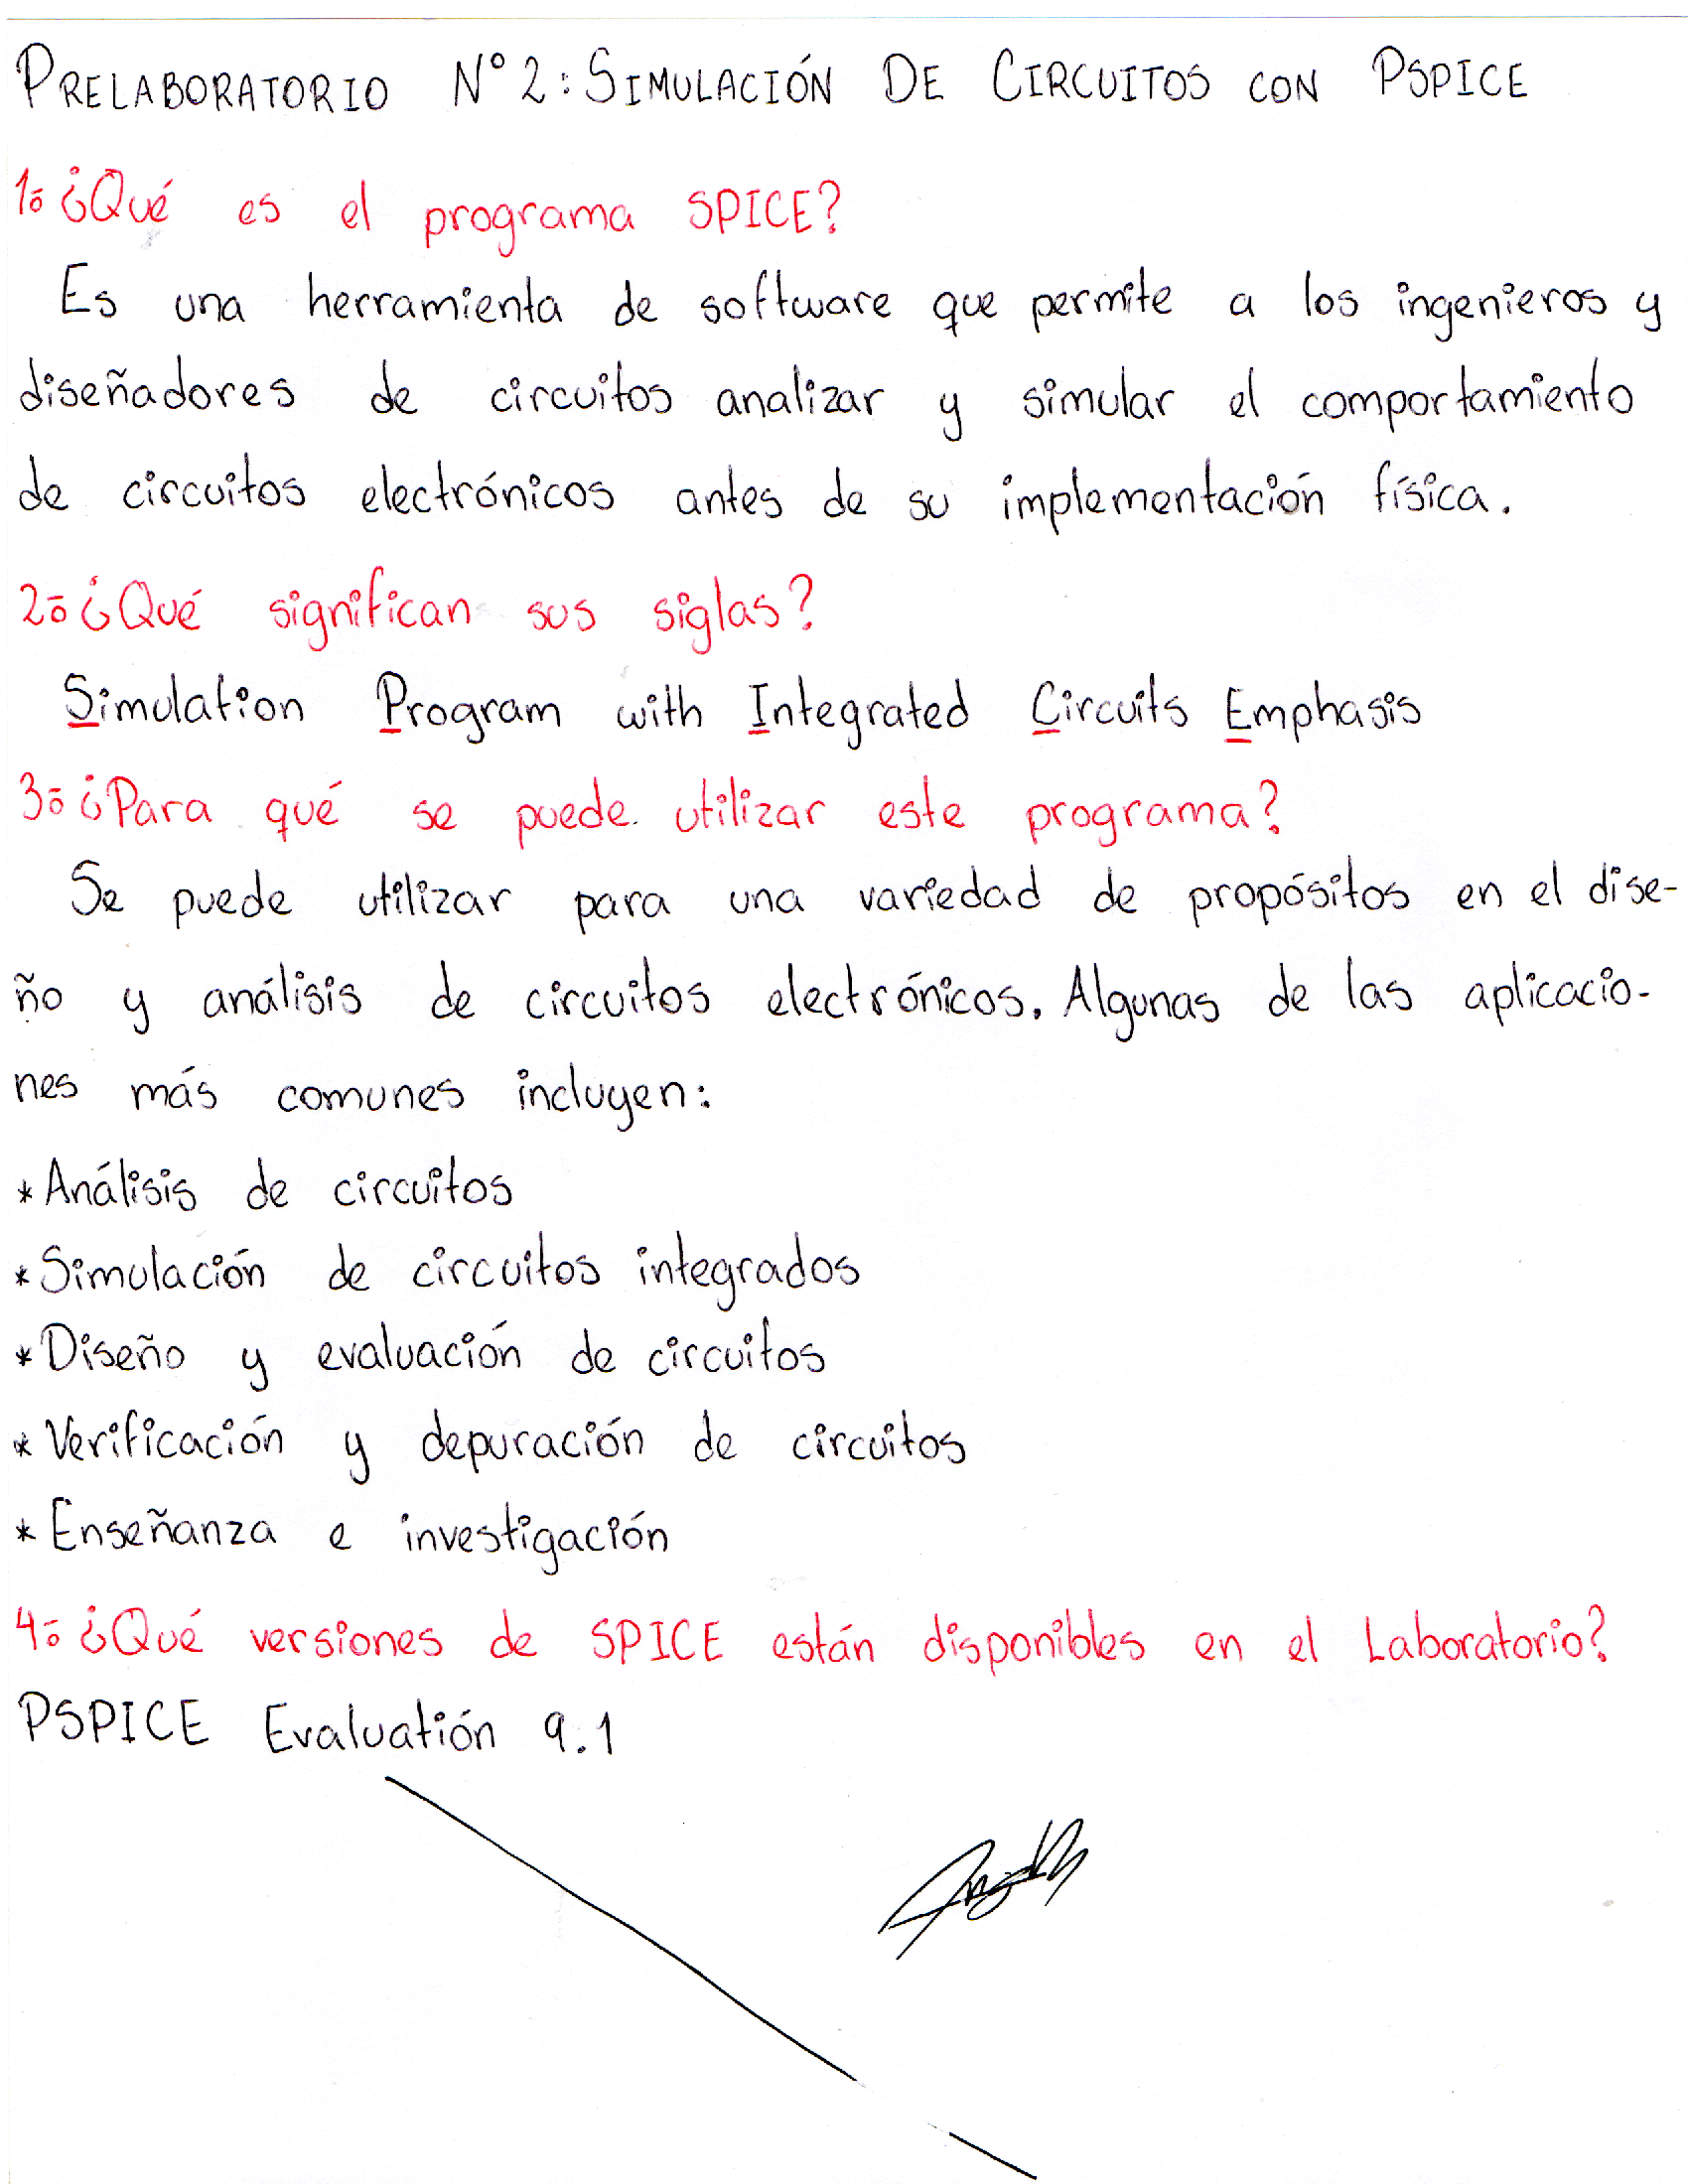 PRELABORATORIO N° 2: SIMULACIÓN DE CIRCUITOS CON PSPICE
1º ¿Qué es el programa SPICE?
Es una herramienta de software que permite a los ingenieros y
diseñadores de circuitos analizar y simular el comportamiento
de circuitos electrónicos antes de su implementación física.
2º ¿Qué significan sus siglas?
Simulation Program with Integrated Circuits Emphasis
3º ¿Para qué se puede utilizar este programa?
Se puede utilizar para una variedad de propósitos en el dise-
ño y análisis de circuitos electrónicos. Algunas de las aplicacio-
nes más comunes incluyen:
* Análisis de circuitos
* Simulación de circuitos integrados
* Diseño y evaluación de circuitos
* Verificación y depuración de circuitos
* Enseñanza e investigación
4º ¿Qué versiones de SPICE están disponibles en el Laboratorio?
PSPICE Evaluatión 9.1